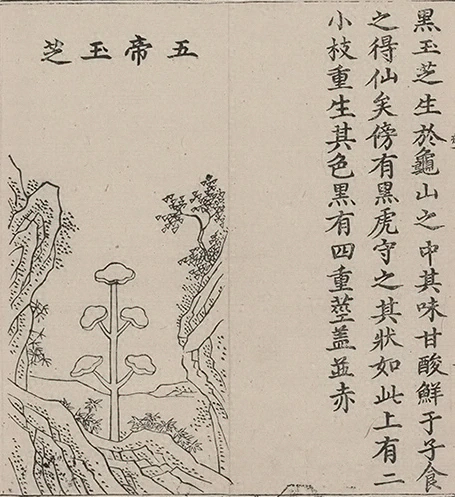 黑玉芝生於龜山之中其味甘酸鮮于子食
之得仙矣傍有黑虎守之其狀如此上有二
小枝重生其色黑有四重莖盖並赤
五帝玉芝